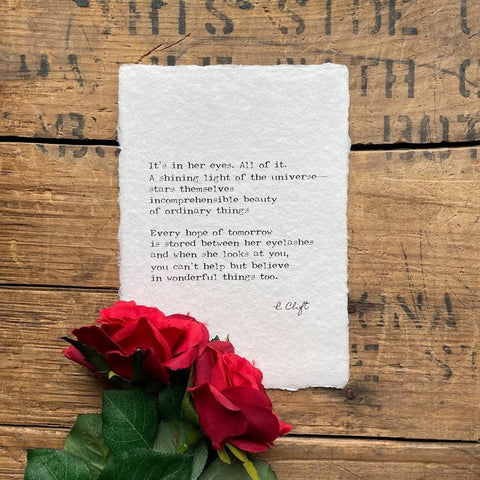 THIS SIDE
It's in her eyes. All of it.
A shining light of the universe—
stars themselves
incomprehensible beauty
of ordinary things
Every hope of tomorrow
is stored between her eyelashes
and when she looks at you,
you can't help but believe
in wonderful things too.
C. Clift